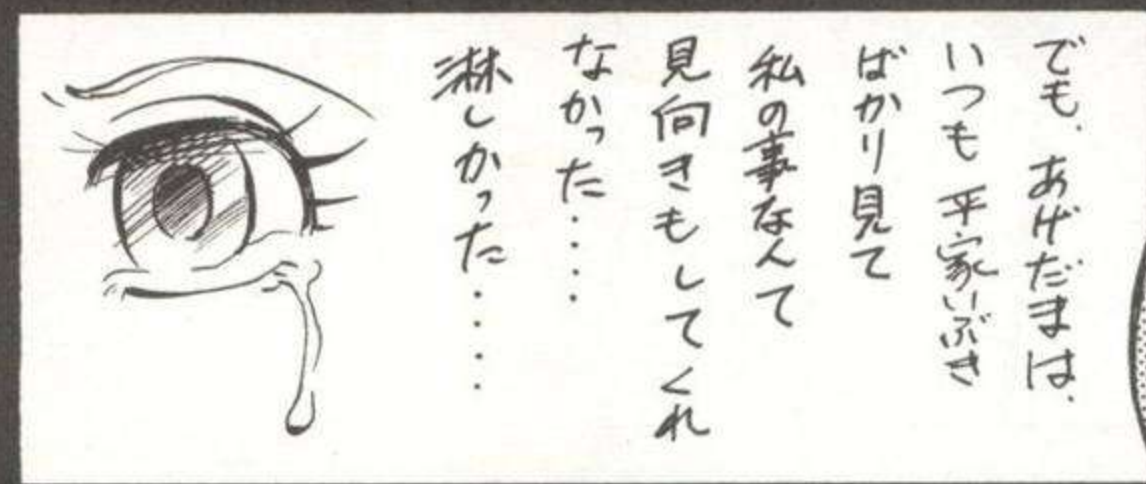 でも、あげだまは、
いつも平家いぶき
ばかり見て
私の事なんて
見向きもしてくれ
なかった・・・・
淋しかった・・・・